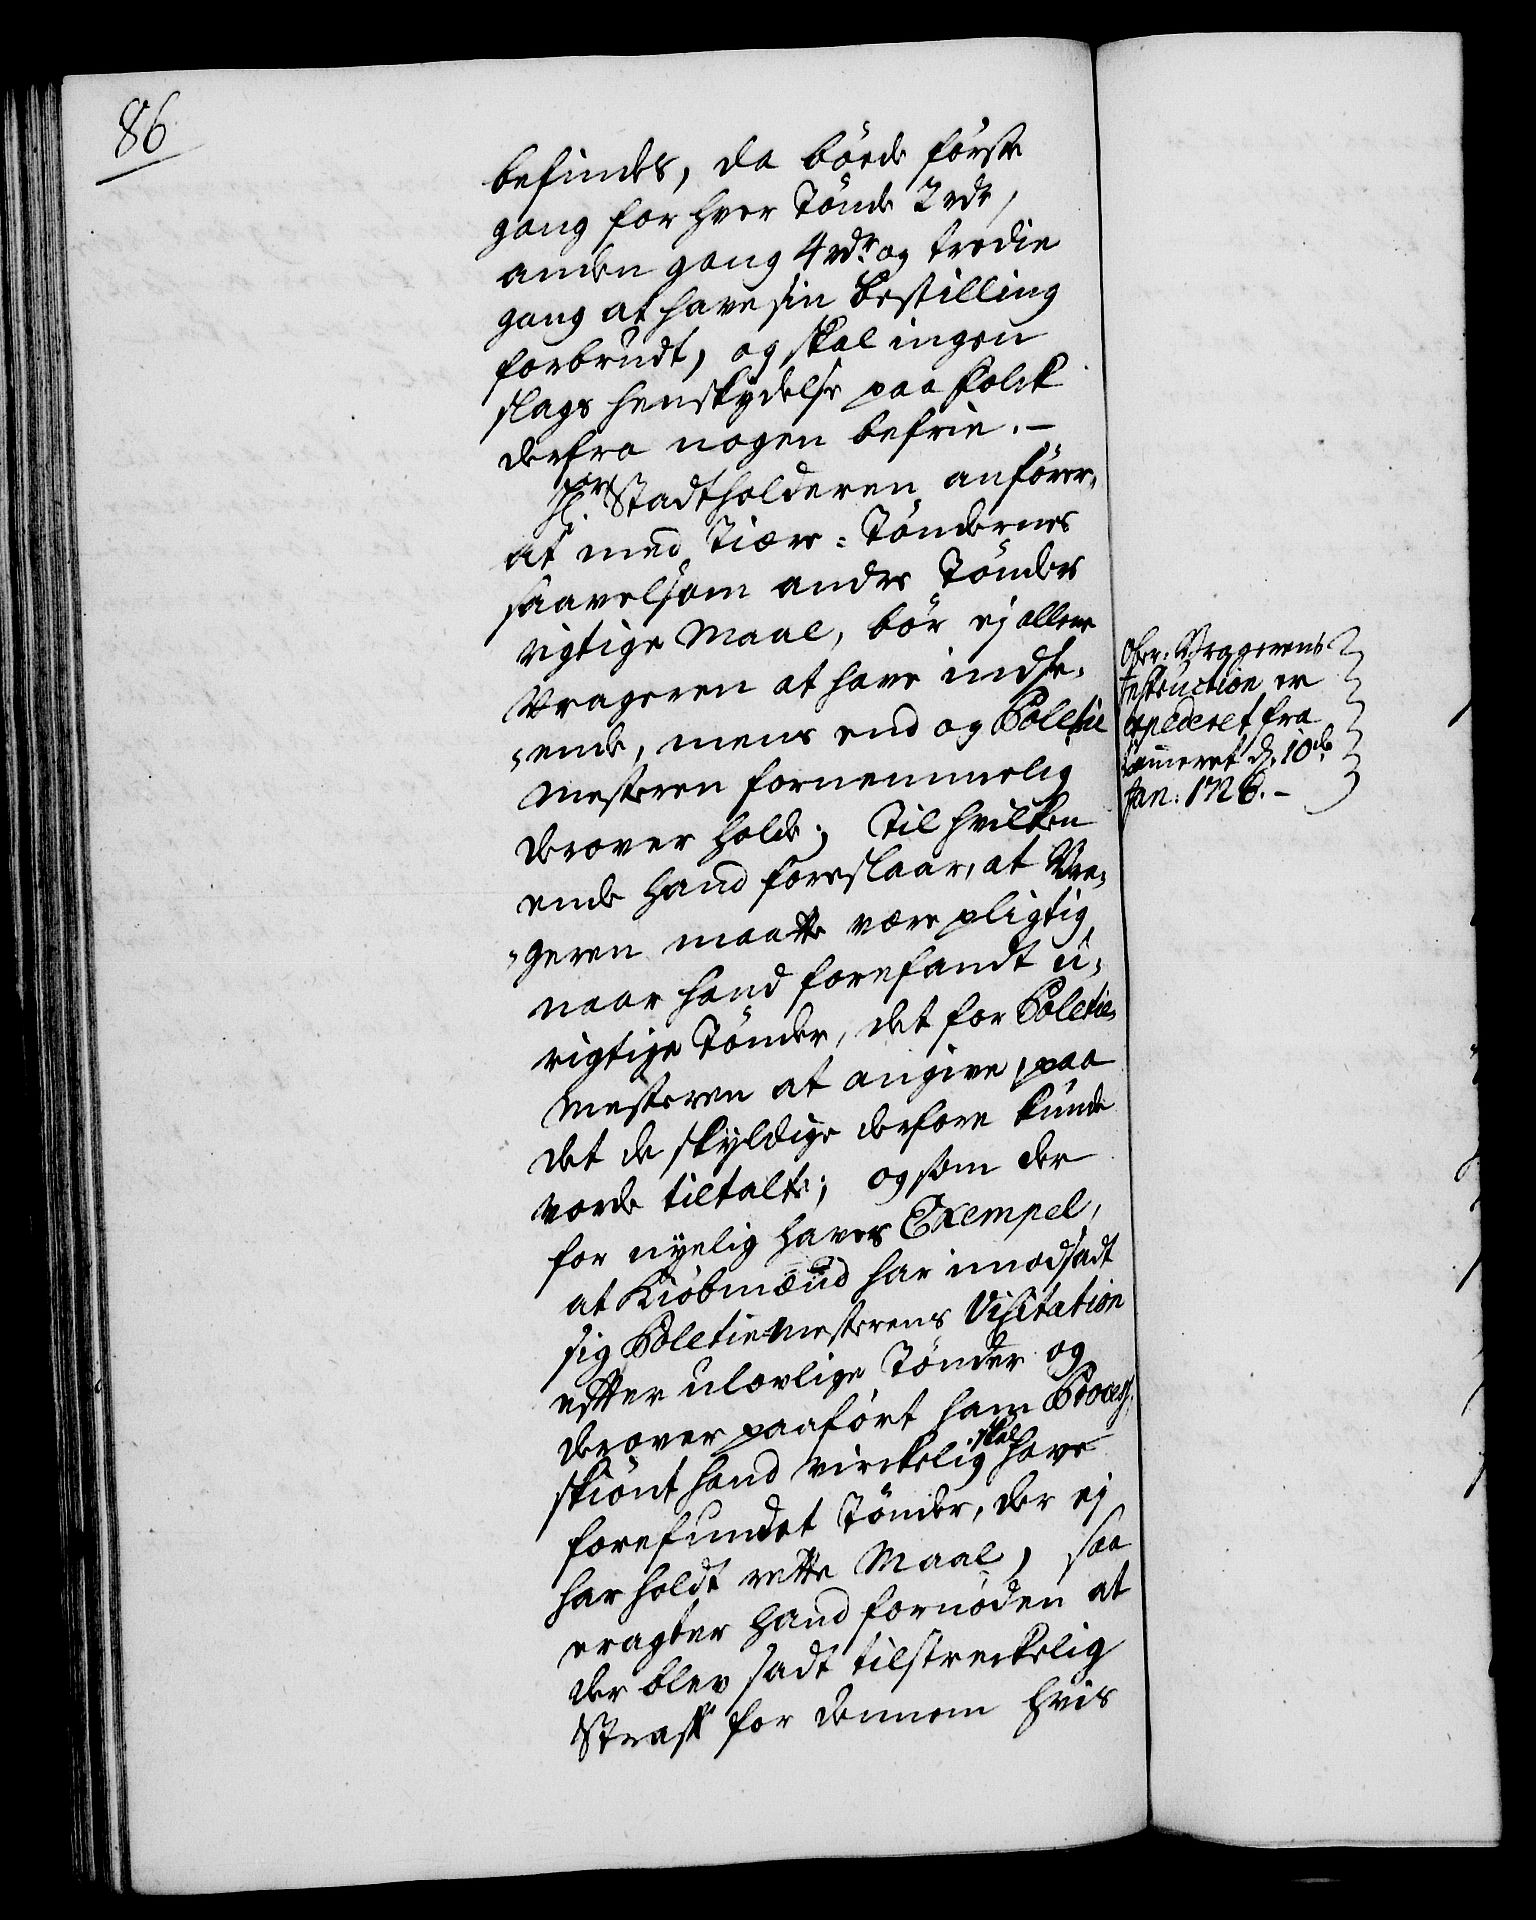 86
befindes, da bøede første
gang for hver Tønde 2 rdr,
anden gang 4 rdr og tredie
gang at have sin Bestilling
forbrudt, og skal ingen
slags henskydelse paa Folck
derfra nogen befrie. –
Hr. Stadtholderen anfører,
at med Tiære-Tøndernes
saavelsom andre Tønders
rigtige Maal, bør ej allene
Vrageren at have indse-
ende, mens end og Poletie
Mesteren fornemmelig
derover holde; Til hvilken
ende hand foreslaar, at Vra-
geren maatte være pligtig
naar hand forefandt u-
rigtige Tønder, det for Poletie-
Mesteren at angive, paa
det de skyldige derfore kunde
vorde tiltalte; og som der
for nyelig haves Exempel,
at Kiøbmænd har imodsadt
sig Poletiemesterens Visitation
efter ulovlige Tønder og
derover paaført ham Process,
skiønt hand virckelig skal have
forefundet Tønder, der ej
har holdt rette Maal, saa
eragter hand fornøden at
der blev sadt tilstreckelig
Straff for dennem hvis
Over-Vragerens
Instruction er
expederet fra
Cammeret d. 10de
Jan: 1728. –